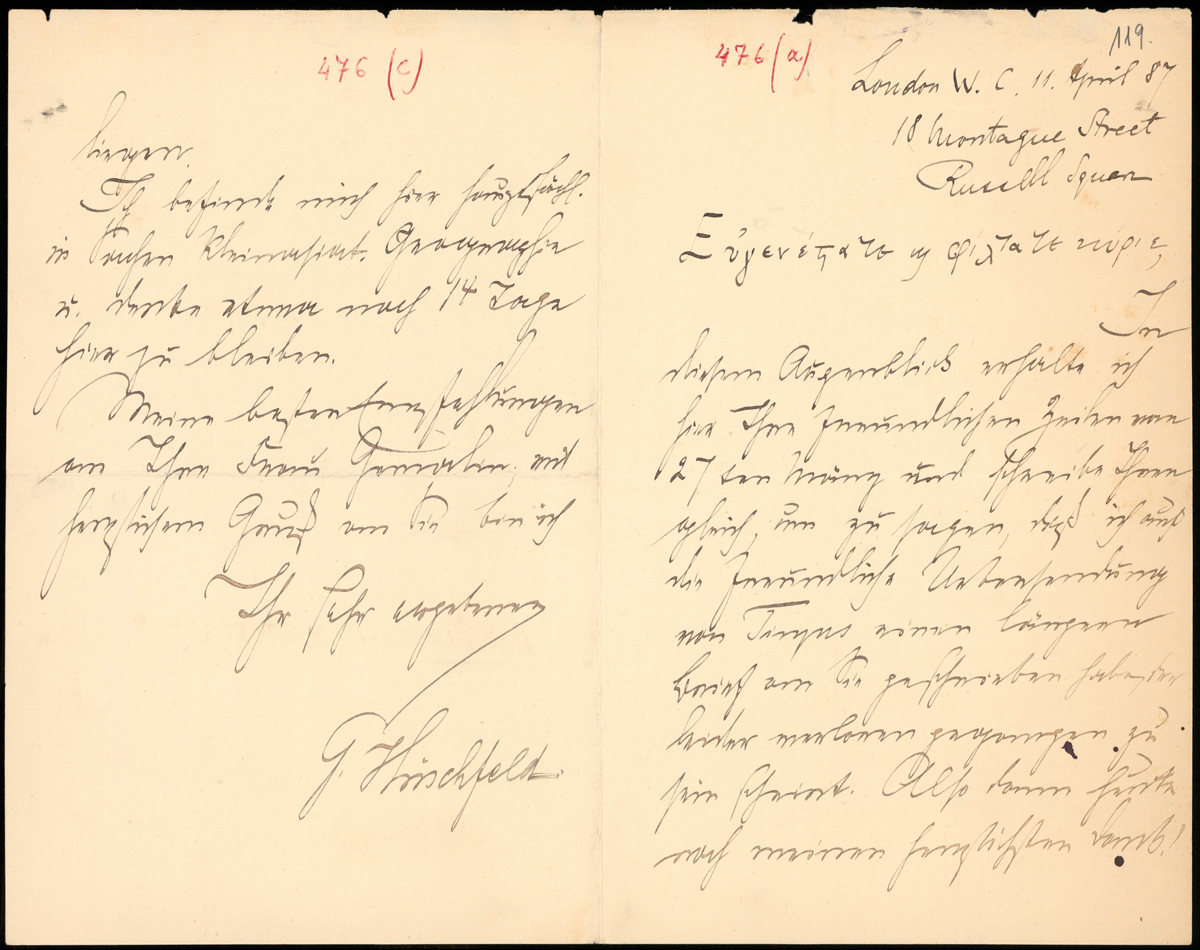 119.
476 (a)
London W. C. 11. April 87
18 Montague Street
Russell Square
Εὐγενέστατε ϗ φίλτατε κύριε,
In
diesem Augenblick erhalte ich
hier Ihre freundlichen Zeilen vom
27ten März und schreibe Ihnen
gleich, um zu sagen, daß ich auf
die freundliche Uebersendung
von Tiryns einen längeren
Brief an Sie geschrieben habe, der
leider verloren gegangen zu
sein scheint. Also dann heute
noch meinen herzlichsten Dank!
476 (c)
liegen.
Ich befinde mich hier hauptsächl.
in Sachen Kleinasiat. Geographie
u. denke etwa noch 14 Tage
hier zu bleiben.
Meine besten Empfehlungen
an Ihre Frau Gemalin; mit
herzlichem Gruß an Sie bin ich
Ihr sehr ergebener
G. Hirschfeld.